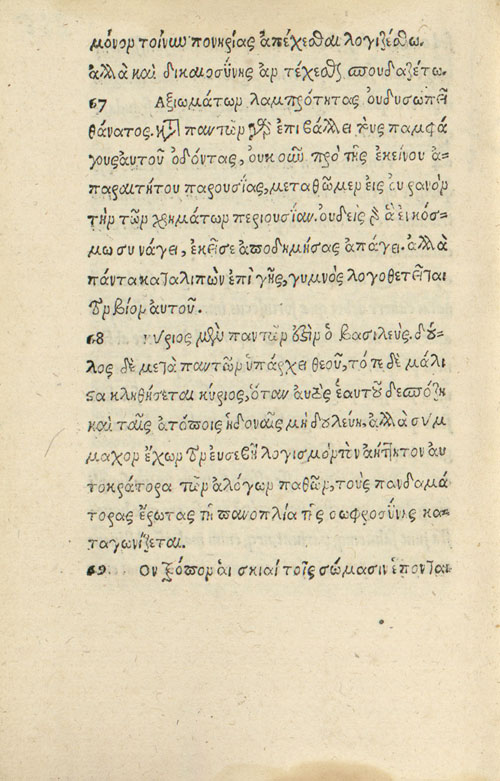 μόνον τοίνυν πονηρίας ἀπέχεσθαι λογιζέσθω.
ἀλλὰ καὶ δικαιοσύνης ἀντέχεσθαι σπουδαζέτω.
67 Αξιωμάτων λαμπρότητας ὀυδυσωπεῖ
θάνατος. κατὰ παντῶν γὰρ ἐπιβάλλει τοὺς παμφά
γους αὐτοῦ ὀδόντας, ὀυκοῦν πρὸ τῆς ἐκείνου ἀ-
παραιτήτου παρουσίας, μεταθῶμεν ἐις ουρανὸν
τὴν τῶν χρημάτων περιουσίαν. ὀυδεὶς γὰρ ἃ ἐν κόσ-
μω συνάγει, ἐκεῖσε ἀποδημήσας ἀπάγει. ἀλλὰ
πάντα καταλιπὼν ἐπὶ γῆς, γυμνὸς λογοθετεῖται
τὸν βίον αυτοῦ.
68 κύριος μὲν παντῶν ἐστὶν ὁ βασιλεὺς. δοῦ-
λος δὲ μετὰ παντῶν ὑπάρχει θεοῦ, τότε δὲ μάλι
στα κληθήσεται κύριος, ὅταν αυτὸς ἑαυτοῦ δεσπόζη
καὶ ταῖς ἀτόποις ἡδοναῖς μὴ δουλεύη. ἀλλὰ σύμ
μαχον ἔχων τὸν ἐυσεβῆ λογισμὸν τὸν αήττητον αυ
τοκράτορα τῶν αλόγων παθῶν, τοὺς πανδαμά
τορας ἔρωτας τῇ πανοπλία τῆς σωφροσύνης κα-
ταγωνίζεται.
69. Ον τρόπον ἁι σκιαὶ τοῖς σώμασιν ἑπονται